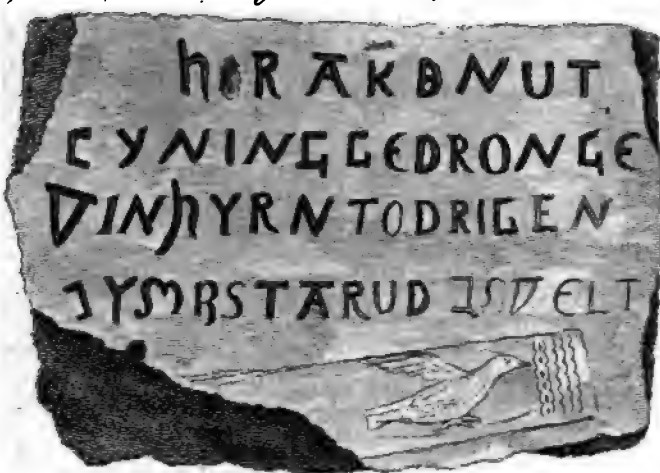 hER ĀKDNUT
CYNINGGEDRONGE
VINhYRNTODRIGEN
⁊YMBSTARUD ⁊SVELT